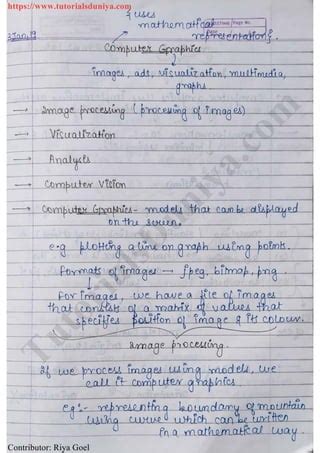 https://www.tutorialsduniya.com
{uses
mathematical
representation}.
Page No.
2 Jan, 19
Computer Graphics -
images, ads, visualization, multimedia,
graphs
→ Image processing (processing of images)
→ Visualization
→ Analysis
→ Computer Vision
→ Computer Graphics - models that can be displayed
on the screen.
e.g plotting a line on graph using points.
Formats of images → jpeg, bitmap, png.
For images, we have a file of images
that consists of a matrix of values that
specifies position of image & its colour.
Image processing.
If we process images using models, we
call it computer graphics.
eg:- representing boundary of mountain
using curve which can be written
in a mathematical way.
TutorialsDuniya.com
Contributor: Riya Goel